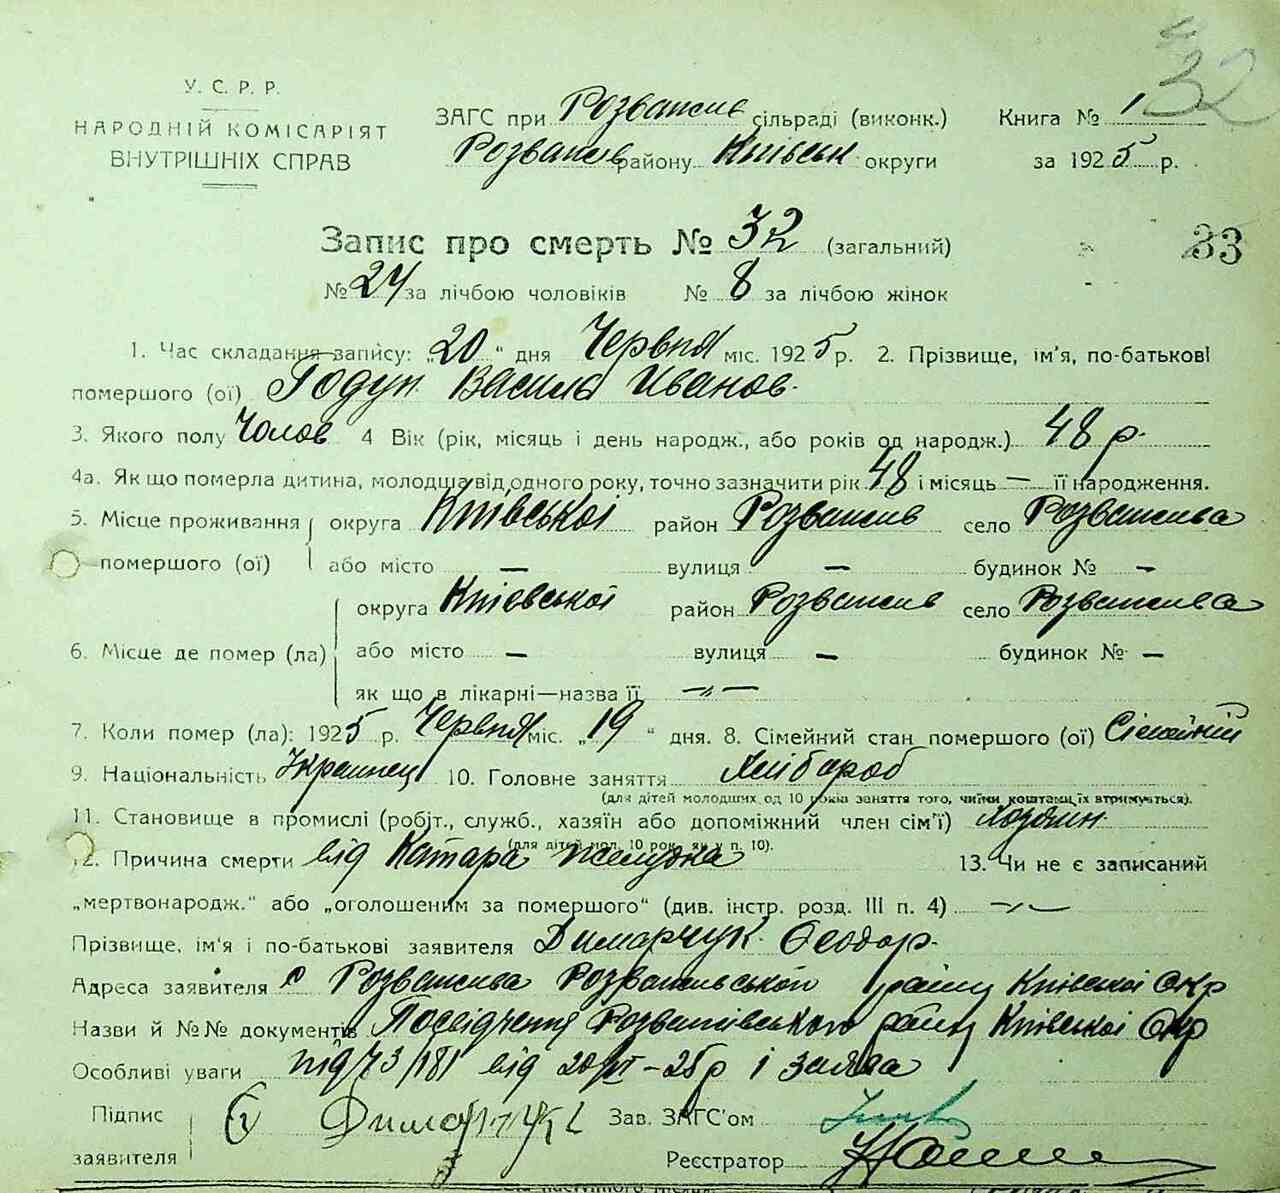 32
У. С. Р. Р.
НАРОДНІЙ КОМІСАРІЯТ
ВНУТРІШНІХ СПРАВ
ЗАГС при Розважив сільраді (виконк.) Книга № 1
Розважив району Київськ округи за 1925 р.
Запис про смерть № 32 (загальний)
33
№ 24 за лічбою чоловіків № 8 за лічбою жінок
1. Час складання запису: „20" дня Червня міс. 1925 р. 2. Прізвище, ім'я, по-батькові
помершого (ої) Годун Василь Иванов
3. Якого полу Чолов 4 Вік (рік, місяць і день народж., або років од народж.) 48 р.
4а. Як що померла дитина, молодша від одного року, точно зазначити рік 48 і місяць — її народження.
5. Місце проживання округа Київської район Розважив село Розважива
помершого (ої) або місто — вулиця — будинок № —
округа Київської район Розважив село Розважива
6. Місце де помер (ла) або місто — вулиця — будинок № —
як що в лікарні—назва її —„—
7. Коли помер (ла): 1925 р. Червня міс. „19" дня. 8. Сімейний стан помершого (ої) Сімейній
9. Національність Украинец 10. Головне заняття Хлібароб
(для дітей молодших од 10 років заняття того, чиїми коштами їх втримується).
11. Становище в промислі (робіт., служб., хазяїн або допоміжний член сім'ї) Хозяин
(для дітей мол. 10 рок. як у п. 10).
12. Причина смерти від Катара желудка 13. Чи не є записаний
„мертвонародж." або „оголошеним за помершого" (див. інстр. розд. III п. 4) —„—
Прізвище, ім'я і по-батькові заявителя Димарчук Феодор
Адреса заявителя с Розважива Розважевської району Київської Окр
Назви й №№ документів Посвідчення Розважівського району Київської Окр
Особливі уваги під 73/181 від 20/VI-25р і заява
Підпис Димарчук Зав. ЗАГС'ом
заявителя Реєстратор